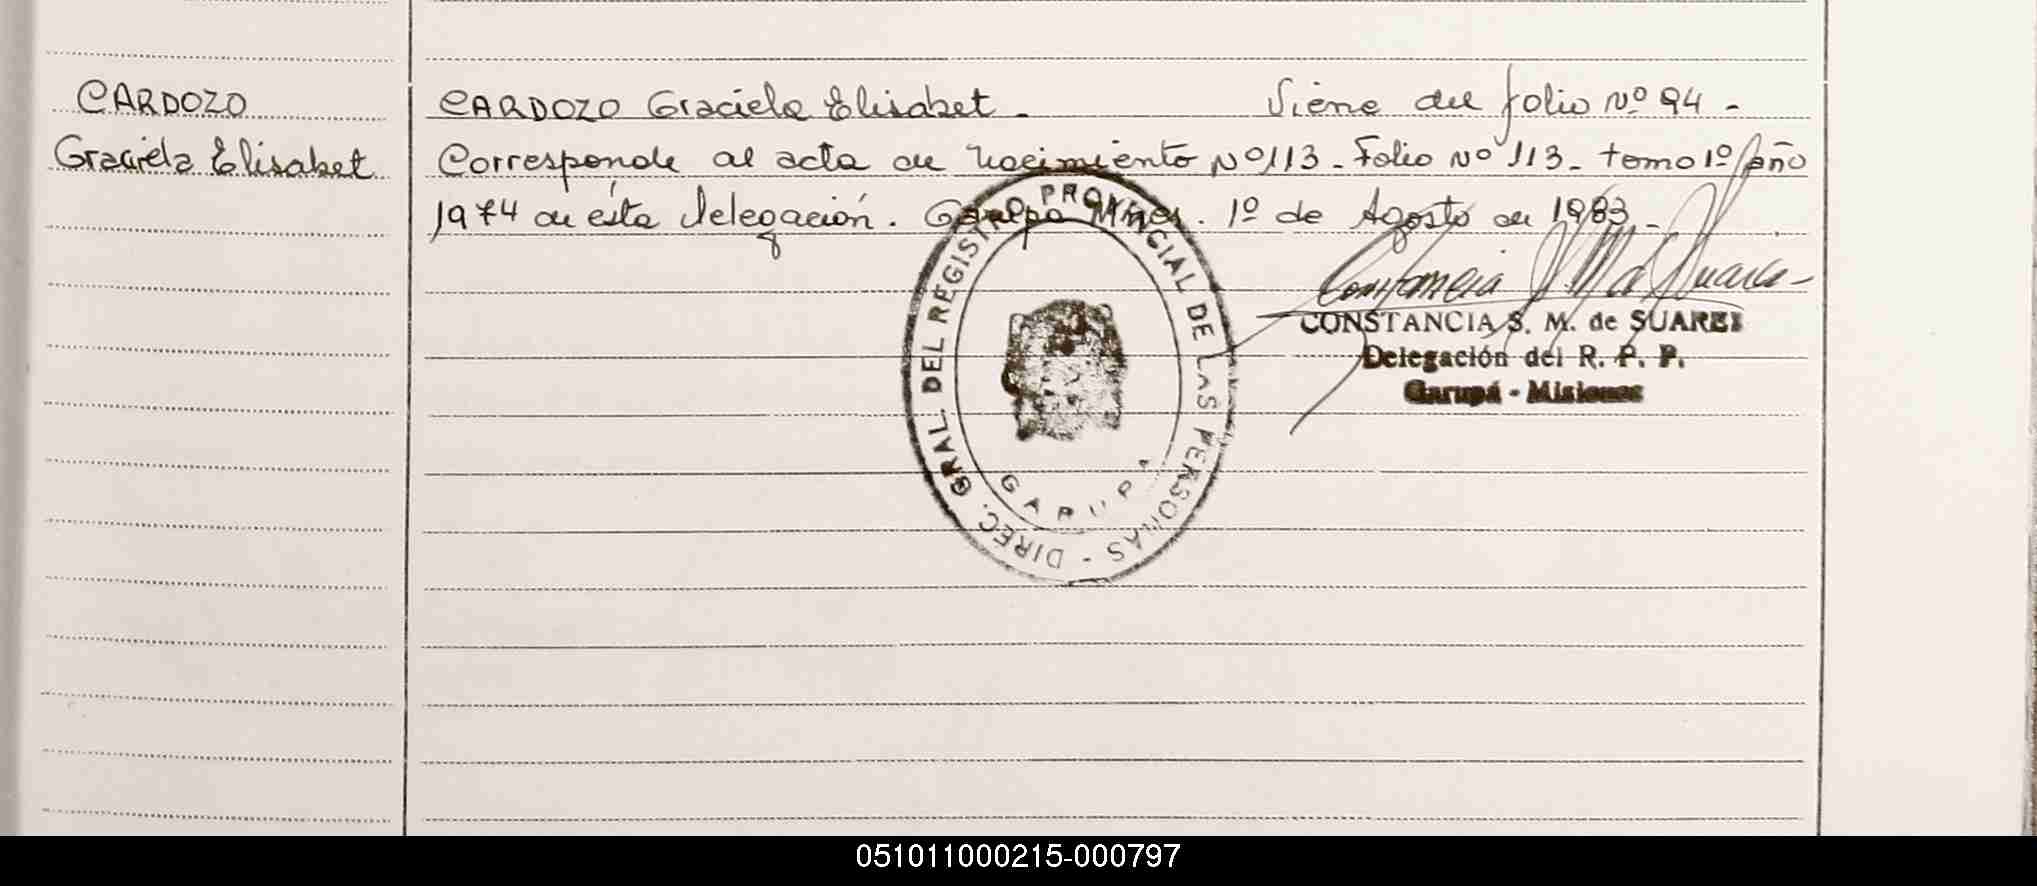 CARDOZO
Graciela Elisabet
CARDOZO Graciela Elisabet. Viene del folio Nº 94 -
Corresponde al acta de Nacimiento Nº 113 - Folio Nº 113 - tomo 1º/año
1974 de ésta delegación. Garupá Mnes. 1º de Agosto de 1983 -
DIREC. GRAL. DEL REGISTRO PROVINCIAL DE LAS PERSONAS -
GARUPA
CONSTANCIA S. M. de SUAREZ
Delegación del R. P. P.
Garupá - Misiones
051011000215-000797